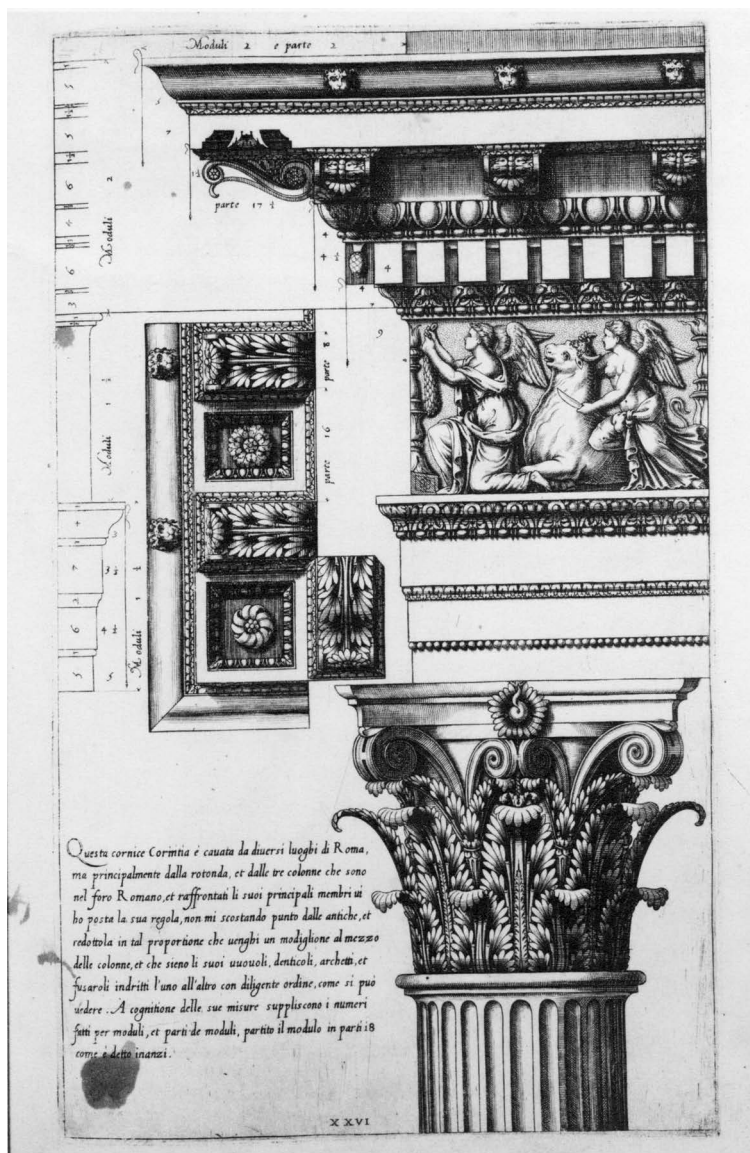 Moduli 2 e parte 2
5
1/2
5
5
1 1/2
6
4
6
3
Moduli 2
5
4
1 1/2
parte 17 1/2
4
4 1/2
4
4
9
parte 8
parte 16
Moduli 1 1/2
4
7
3
6
5
3 1/2
4 1/2
5
Moduli 1 1/2
Questa cornice Corintia è cauata da diuersi luoghi di Roma,
ma principalmente dalla rotonda, et dalle tre colonne che sono
nel foro Romano, et raffrontati li suoi principali membri ui
ho posta la sua regola, non mi scostando punto dalle antiche, et
redottola in tal proportione che uenghi un modiglione al mezzo
delle colonne, et che sieno li suoi uuouoli, denticoli, archetti, et
fusaroli indritti l'uno all'altro con diligente ordine, come si può
uedere. A cognitione delle sue misure suppliscono i numeri
fatti per moduli, et parti de moduli, partito il modulo in parti 18
come è detto inanzi.
XXVI